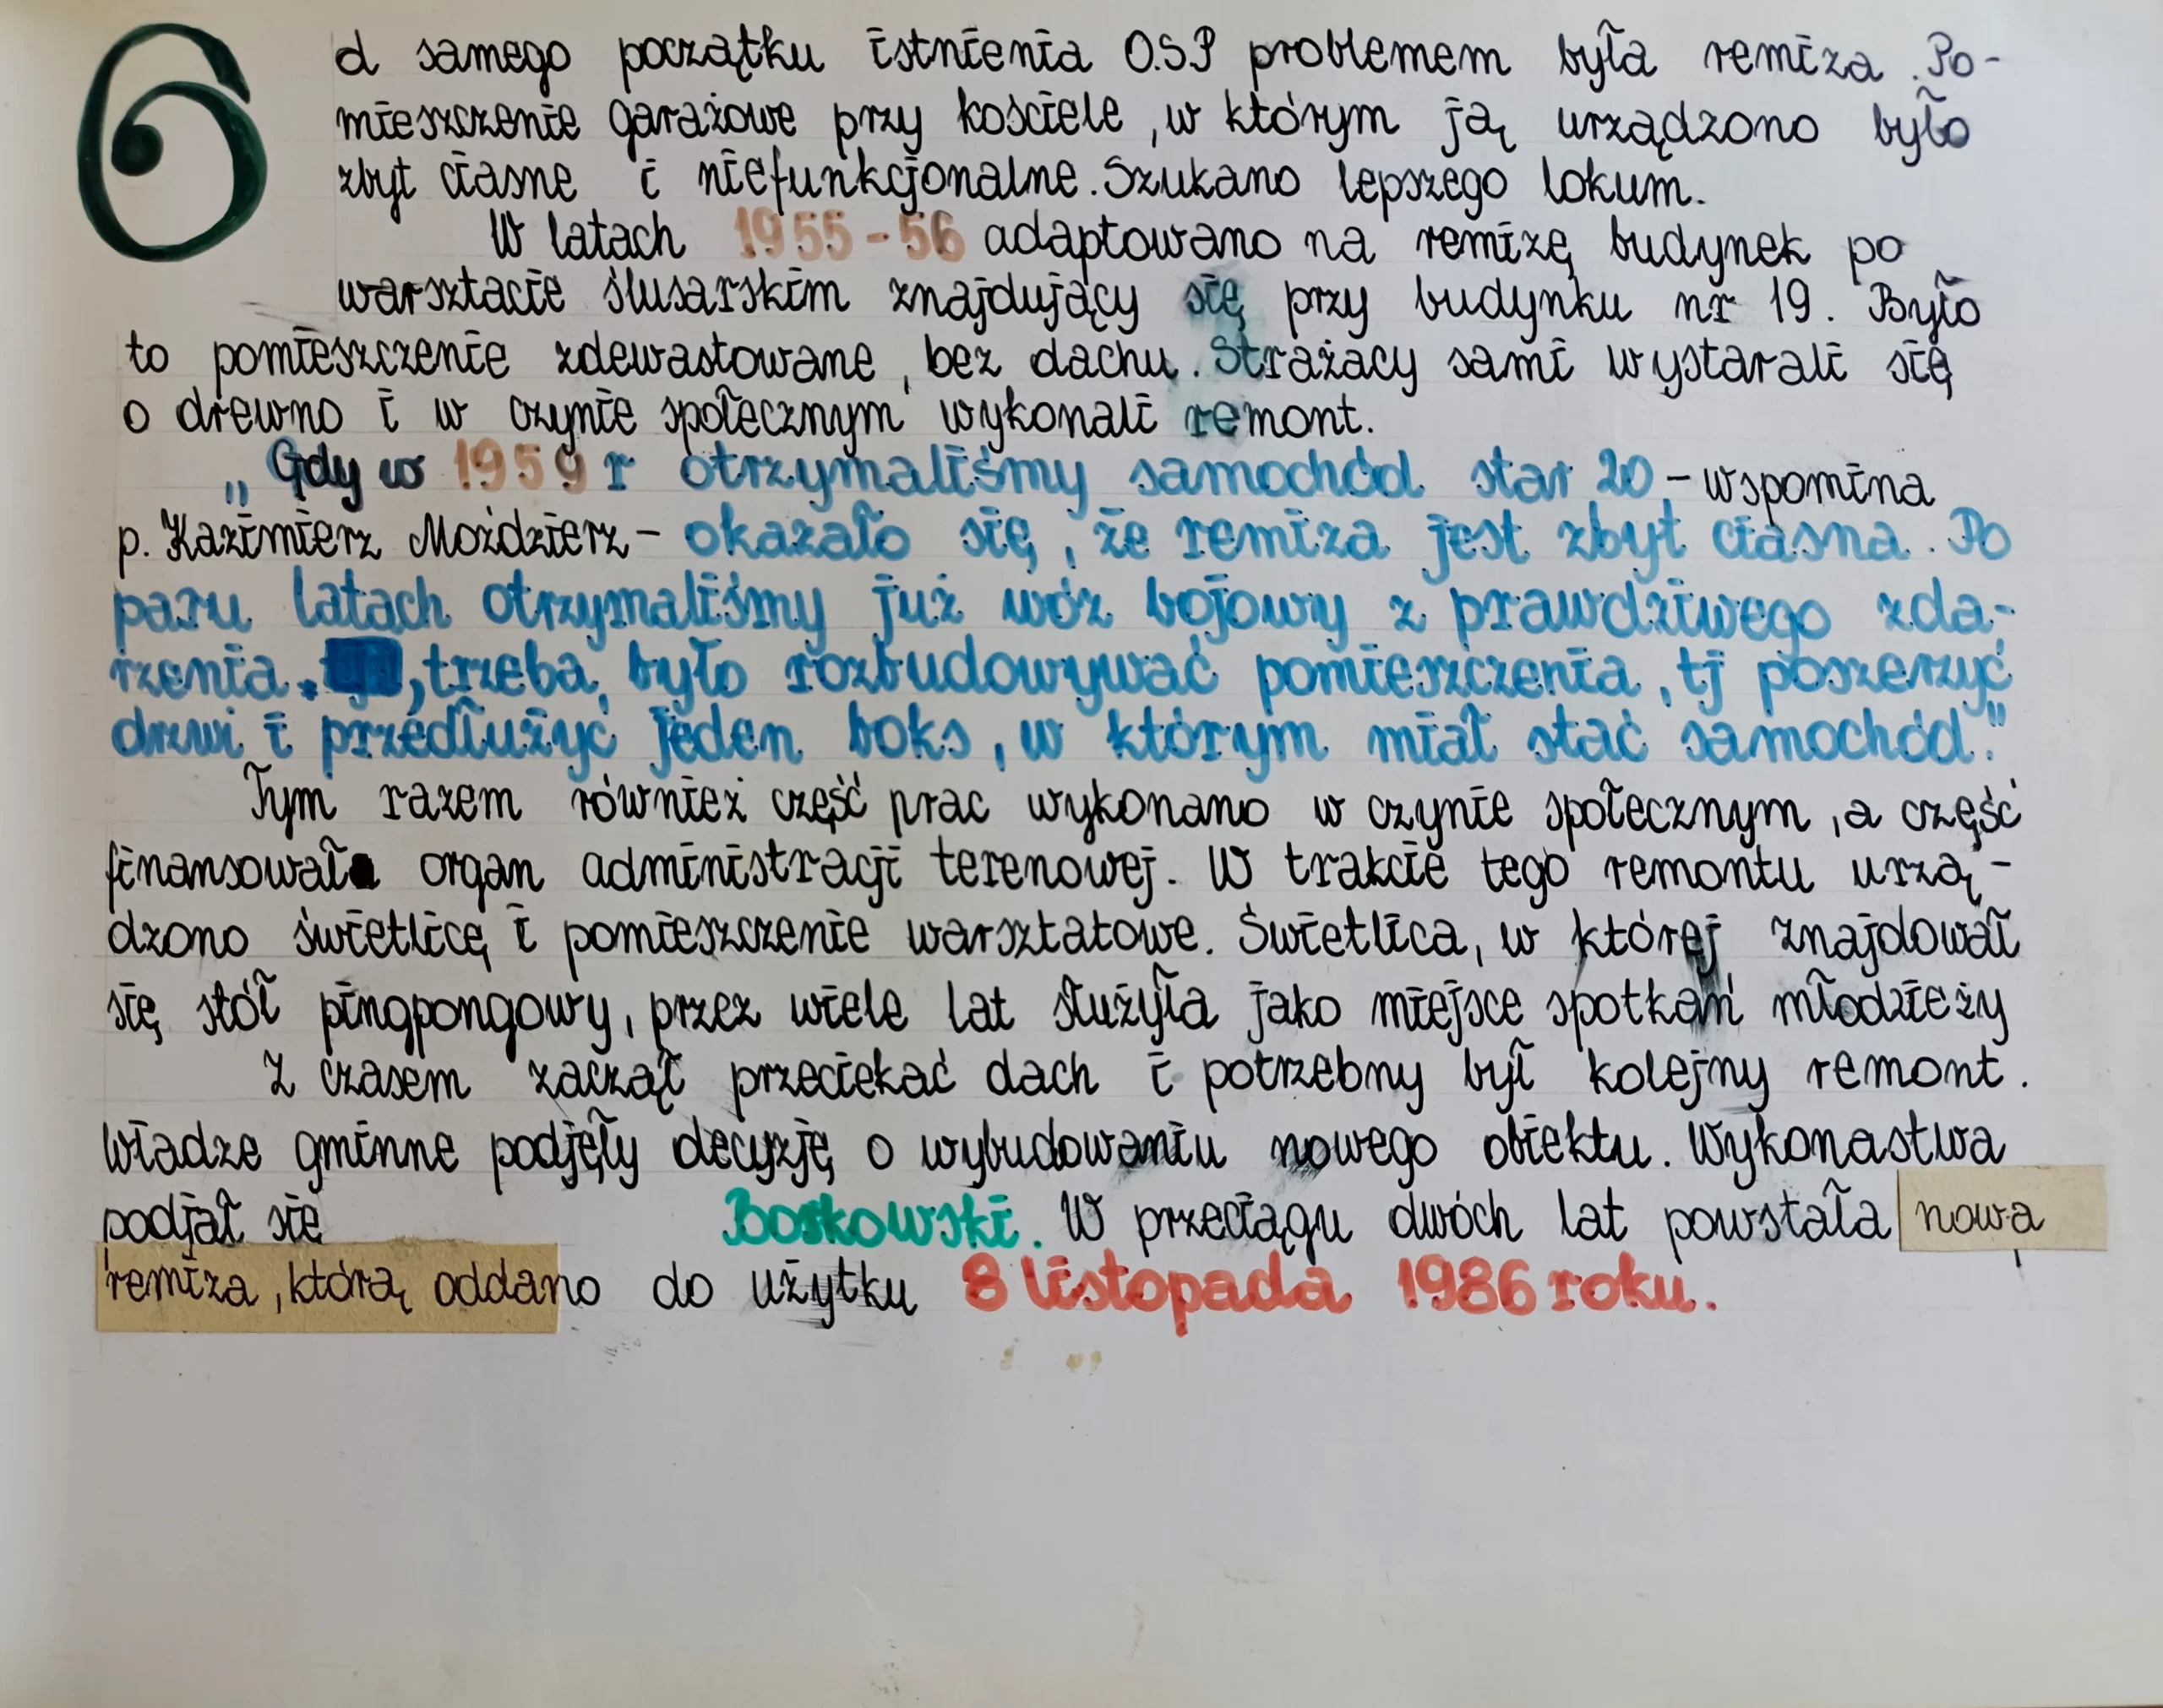 Od samego początku istnienia O.S.P problemem była remiza. Po-
mieszczenie garażowe przy kościele, w którym ją urządzono było
zbyt ciasne i niefunkcjonalne. Szukano lepszego lokum.
W latach 1955-56 adaptowano na remizę budynek po
warsztacie ślusarskim znajdujący się przy budynku nr 19. Było
to pomieszczenie zdewastowane, bez dachu. Strażacy sami wystarali się
o drewno i w czynie społecznym wykonali remont.
„Gdy w 1959 r otrzymaliśmy samochód star 20 - wspomina
p. Kazimierz Moździerz - okazało się, że remiza jest zbyt ciasna. Po
paru latach otrzymaliśmy już wóz bojowy z prawdziwego zda-
rzenia. , trzeba było rozbudowywać pomieszczenia, tj poszerzyć
drzwi i przedłużyć jeden boks, w którym miał stać samochód."
Tym razem również część prac wykonano w czynie społecznym, a część
finansował organ administracji terenowej. W trakcie tego remontu urzą-
dzono świetlicę i pomieszczenie warsztatowe. Świetlica, w której znajdował
się stół pingpongowy, przez wiele lat służyła jako miejsce spotkań młodzieży
Z czasem zaczął przeciekać dach i potrzebny był kolejny remont.
Władze gminne podjęły decyzję o wybudowaniu nowego obiektu. Wykonastwa
podjął się Boskowski. W przeciągu dwóch lat powstała nowa
remiza, którą oddano do użytku 8 listopada 1986 roku.